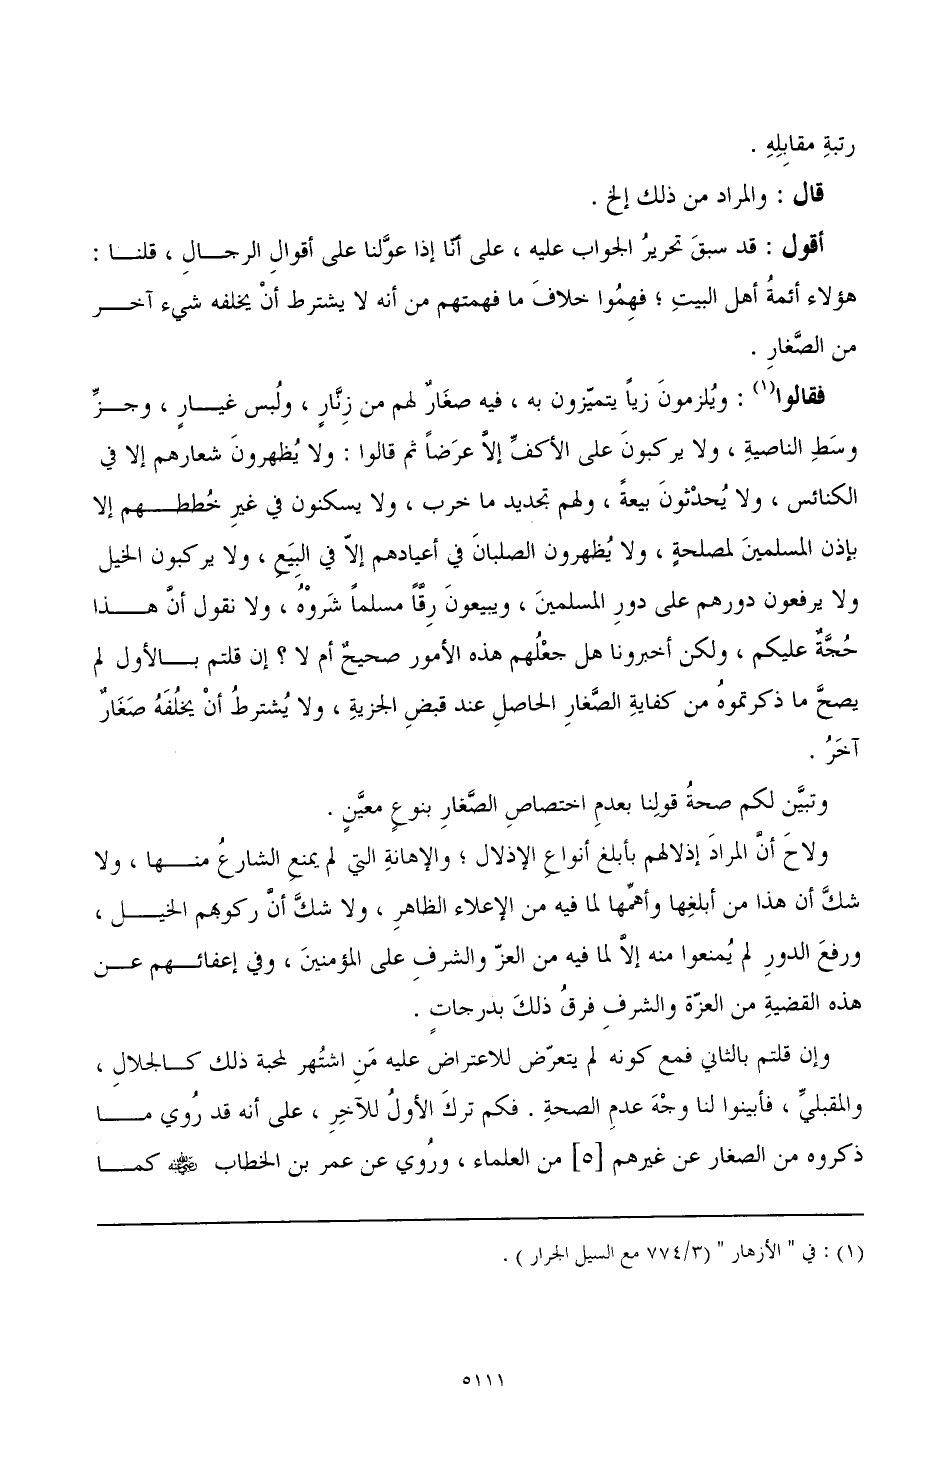 رتبةِ مقابِلِهِ .
قال : والمراد من ذلك إلخ .
أقول : قد سبقَ تحريرُ الجواب عليه ، على أنّا إذا عوَّلنا على أقوالِ الرجـــالِ ، قلنـــا :
هؤلاء أئمةُ أهل البيتِ ؛ فهِمُوا خلافَ ما فهمتهم من أنه لا يشترط أنْ يخلفه شيء آخـــر
من الصَّغارِ .
فقالوا(١) : ويُلزمونَ زياً يتميّزون به ، فيه صغَارٌ لهم من زِنَّارٍ ، ولُبس غيـــارٍ ، وجـــزِّ
وسَطِ الناصيةِ ، ولا يركبونَ على الأكفِّ إلاَّ عرَضاً ثم قالوا : ولا يُظهرونَ شعارهم إلا في
الكنائس ، ولا يُحدْثونَ بيعةً ، ولهم تجديد ما خرب ، ولا يسكنون في غيرِ خُططـــهم إلا
بإذن المسلمينَ لمصلحةٍ ، ولا يُظهرون الصلبانَ في أعيادهم إلاّ في البِيَعِ ، ولا يركبون الخيل
ولا يرفعون دورهم على دورِ المسلمينَ ، ويبيعونَ رِقَّاً مسلماً شَروْهُ ، ولا نقول أنَّ هـــذا
حُجَّةٌ عليكم ، ولكن أخبرونا هل جعْلُهم هذه الأمور صحيحٌ أم لا ؟ إن قلتم بـــالأول لم
يصحَّ ما ذكرتموهُ من كفايةِ الصَّغارِ الحاصلِ عند قبضِ الجزيةِ ، ولا يُشترطُ أنْ يخلُفَهُ صَغَارٌ
آخَرُ .
وتبيَّن لكم صحةُ قولِنا بعدمِ اختصاصِ الصَّغارِ بنوعٍ معيَّنٍ .
ولاحَ أنَّ المرادَ إذلالهم بأبلغِ أنواعِ الإذلال ؛ والإهانةِ التي لم يمنعِ الشارعُ منـــها ، ولا
شكَّ أن هذا من أبلغِها وأهمِّها لما فيه من الإعلاء الظاهرِ ، ولا شكَّ أنَّ ركوبهم الخيـــل ،
ورفعَ الدورِ لم يُمنعوا منه إلاَّ لما فيه من العزّ والشرفِ على المؤمنينَ ، وفي إعفائـــهم عـــن
هذه القضيةِ من العزّة والشرفِ فرقُ ذلكَ بدرجاتٍ .
وإن قلتم بالثاني فمع كونه لم يتعرّض للاعتراض عليه مَنِ اشتُهر لمحبة ذلك كـــالجلالِ ،
والمقبليِّ ، فأبينوا لنا وجْهَ عدمِ الصحةِ . فكم تركَ الأولُ للآخِرِ ، على أنه قد رُوي مـــا
ذكروه من الصغار عن غيرهم [٥] من العلماء ، ورُوي عن عمر بن الخطاب ﷺ كمـــا
(١) : في " الأزهار " (٧٧٤/٣ مع السيل الجرار ) .
٥١١١